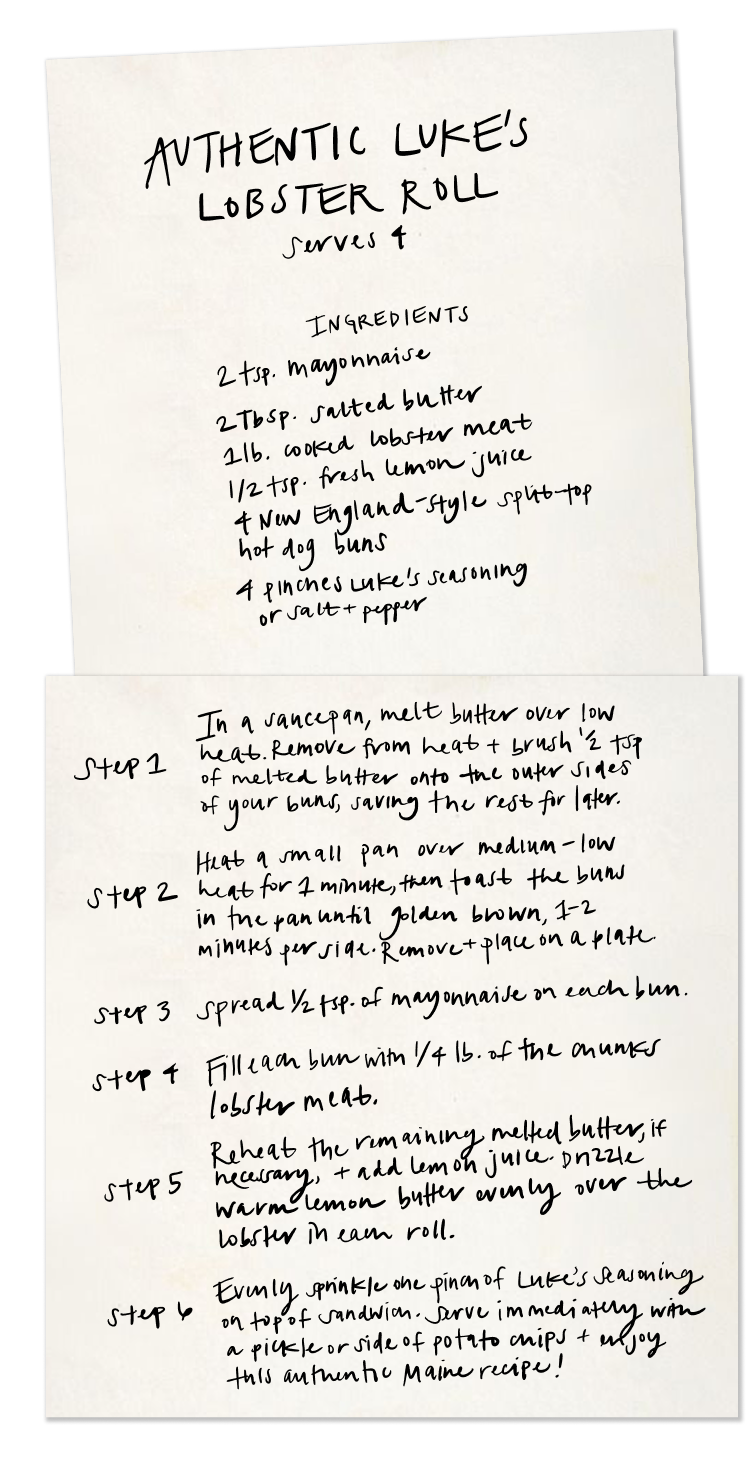 AUTHENTIC LUKE'S
LOBSTER ROLL
serves 4
INGREDIENTS
2 tsp. mayonnaise
2 Tbsp. salted butter
1 lb. cooked lobster meat
1/2 tsp. fresh lemon juice
4 New England-style split-top
hot dog buns
4 pinches Luke's seasoning
or salt + pepper
Step 1
In a saucepan, melt butter over low
heat. Remove from heat + brush 1/2 tsp
of melted butter onto the outer sides
of your buns, saving the rest for later.
Step 2
Heat a small pan over medium-low
heat for 1 minute, then toast the buns
in the pan until golden brown, 1-2
minutes per side. Remove + place on a plate.
Step 3
Spread 1/2 tsp. of mayonnaise on each bun.
Step 4
Fill each bun with 1/4 lb. of the chunks
lobster meat.
Step 5
Reheat the remaining melted butter, if
necessary, + add lemon juice. Drizzle
warm lemon butter evenly over the
lobster in each roll.
Step 6
Evenly sprinkle one pinch of Luke's seasoning
on top of sandwich. Serve immediately with
a pickle or side of potato chips + enjoy
this authentic Maine recipe!